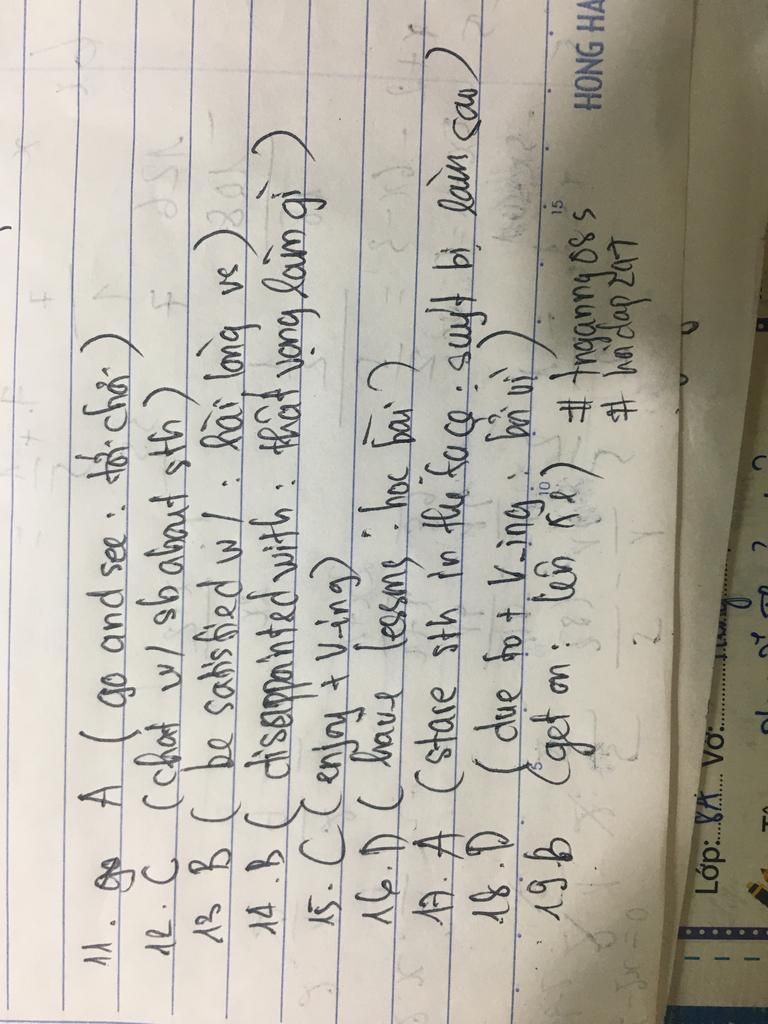 11. A (go and see : tới chơi)
12. C (chat w/ sb about sth)
13 B (be satisfied w/ : hài lòng vs)
14. B (disappointed with : thất vọng làm gì)
15. C (enjoy + V-ing)
16. D (have lessons : học bài)
17. A (stare sth in the face : suýt bị làm sao)
18. D (due to + V-ing : bởi vì)
19 B (get on : lên xe)
# hoidap247
HONG HA
5
10
15
Lớp: 8A Vở: